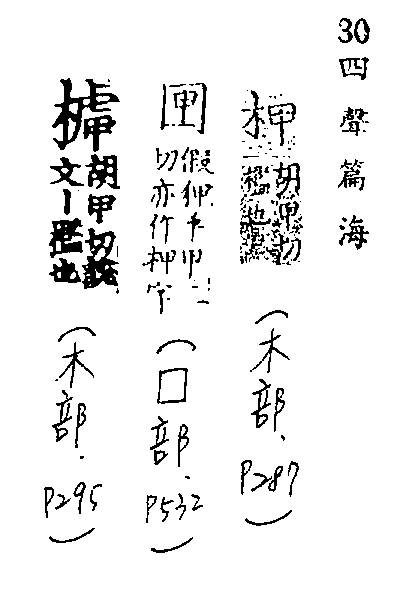 30 四聲篇海
柙
胡甲切
檻也
(木部、P287)
假狎乎甲二
切亦作柙字
(囗部、P532)
胡甲切說
文丨檻也
(木部.P295)